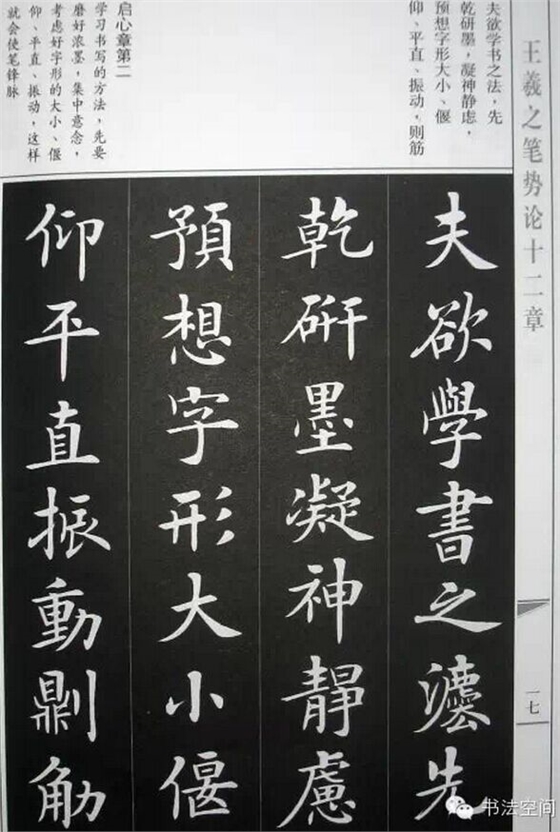 王羲之笔势论十二章
夫欲学书之法，先
乾研墨，凝神静虑，
预想字形大小、偃
仰、平直、振动，则筋
启心章第二
学习书写的方法，先要
磨好浓墨，集中意念，
考虑好字形的大小、偃
仰、平直、振动，这样
就会使笔锋脉
夫欲學書之灋先
乾硏墨凝神靜慮
預想字形大小偃
仰平直振動則觔
一七
书法空间